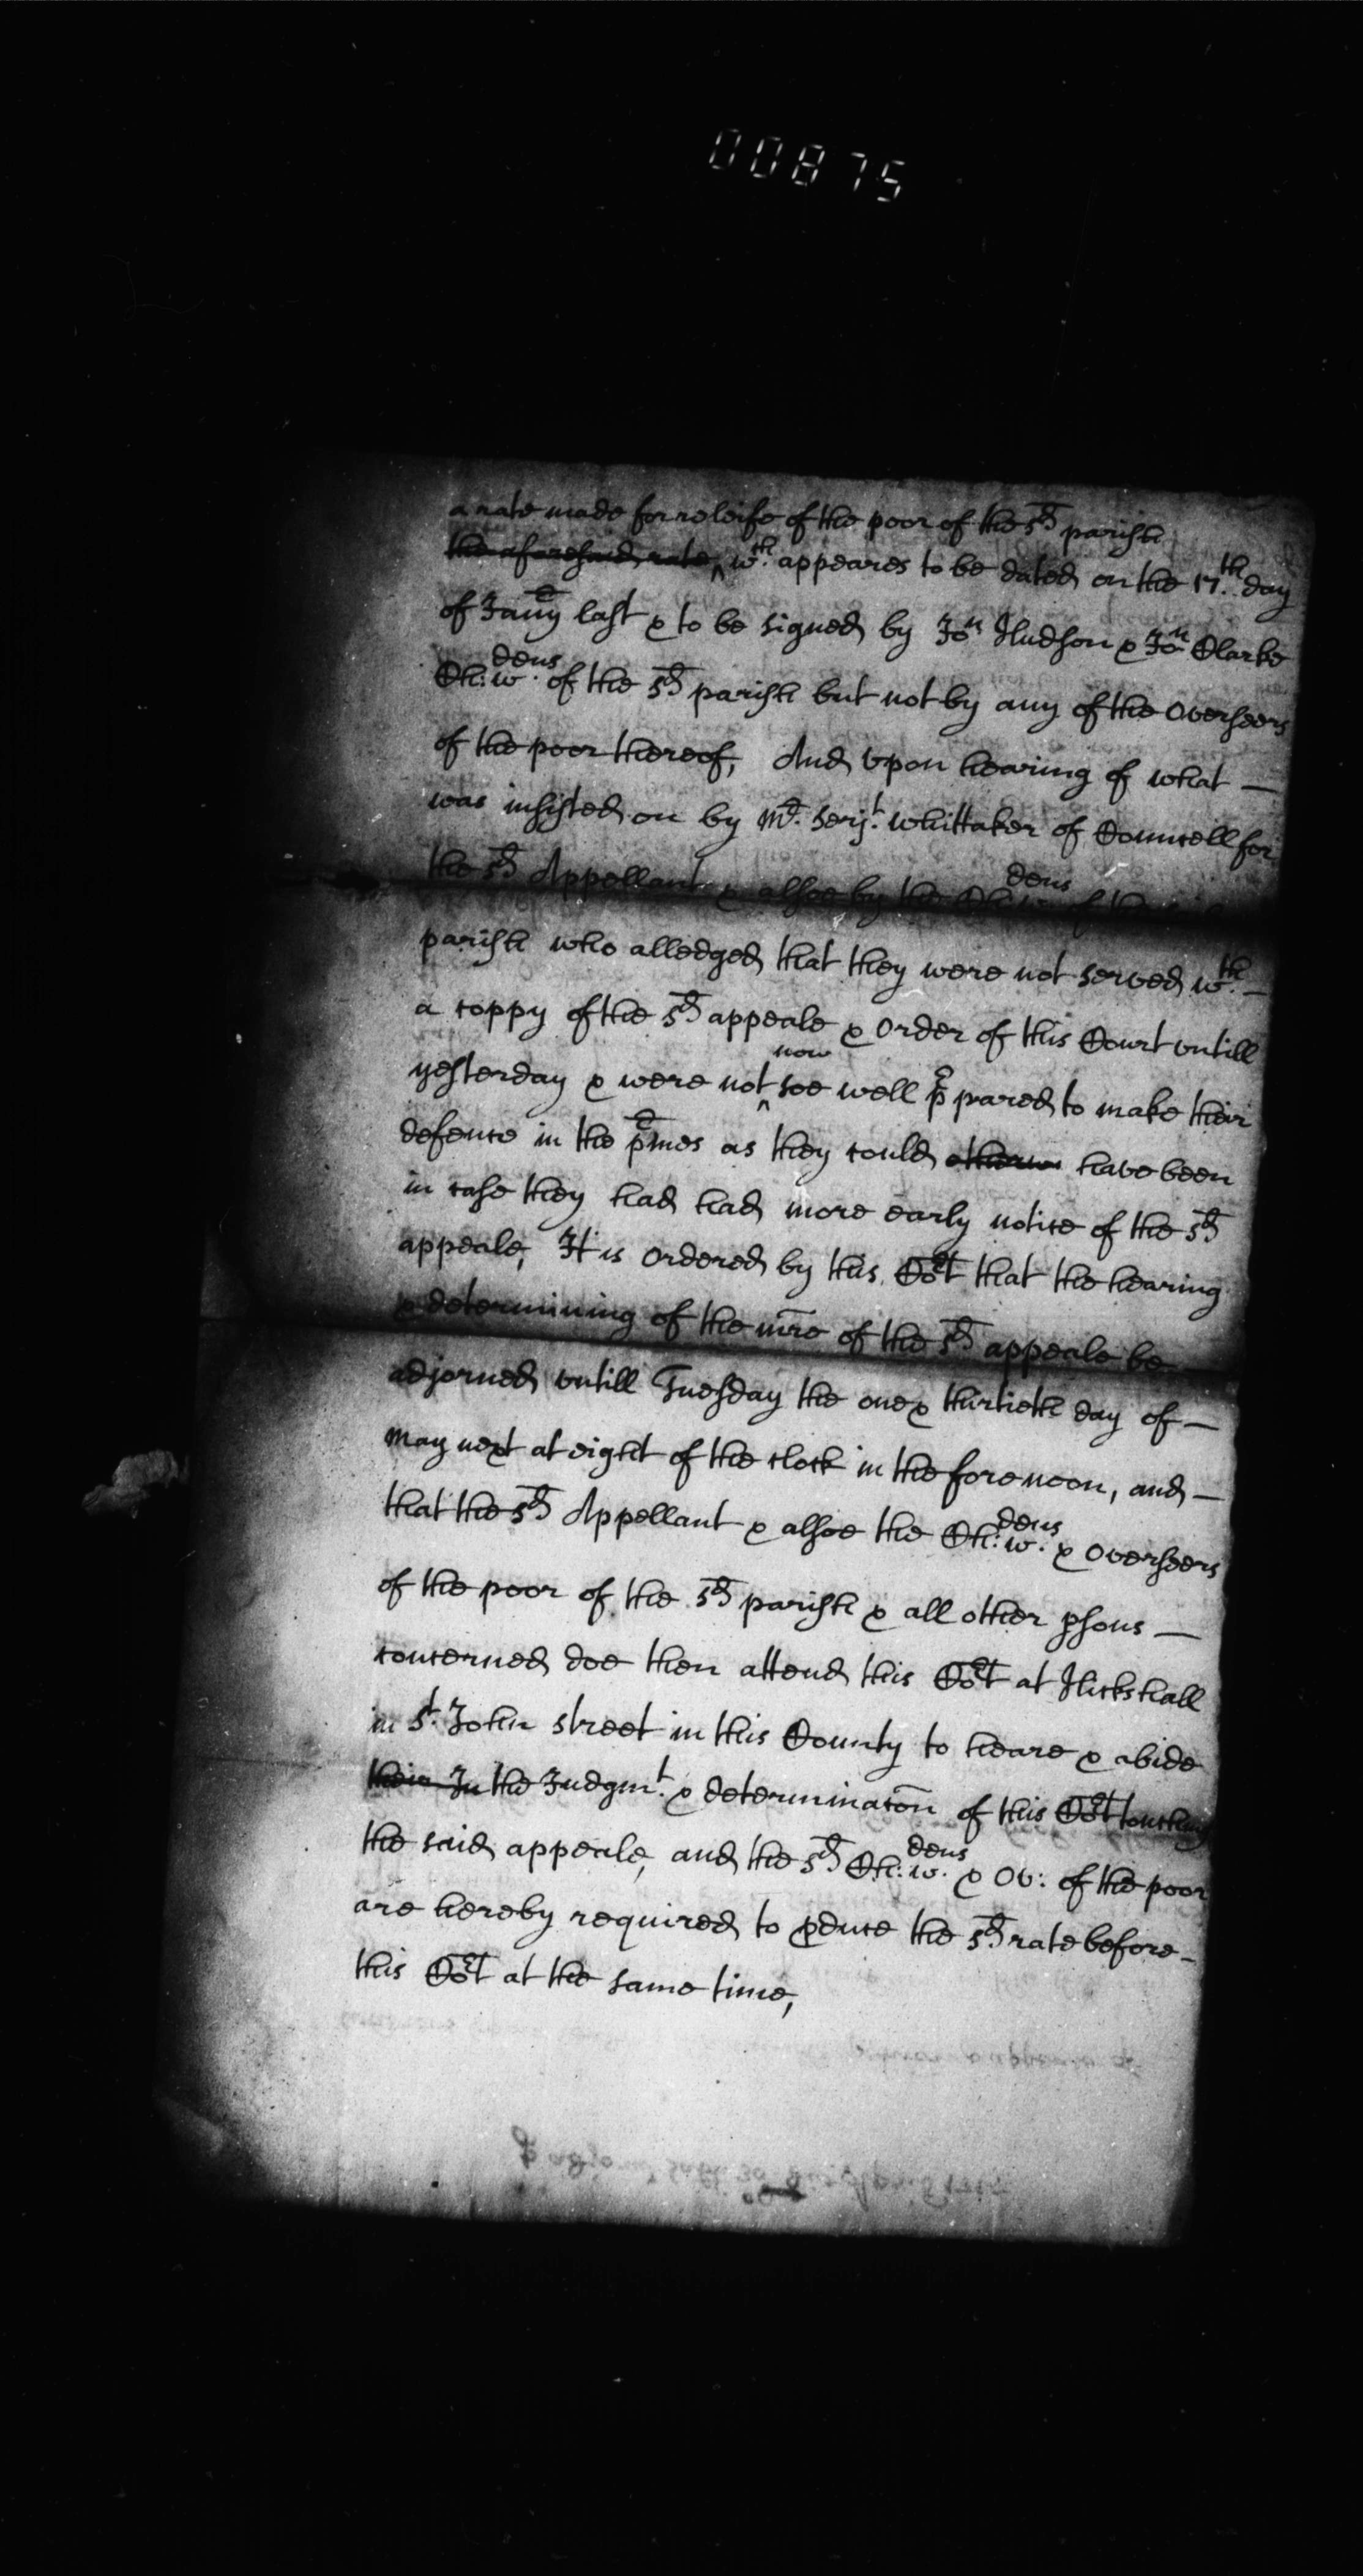 00875
a rate made for releife of the poor of the sd parish
the aforesaid rate ^ wth. appeares to be dated on the 17th. day
of Janry last & to be signed by Jon Hudson & Jon Clarke
Ch:wdens. of the sd parish but not by any of the Overseers
of the poor thereof, And upon hearing of what —
was insisted on by Mr. Serjt. Whittaker of Councell for
the sd Appellant & alsoe by the Ch:wdens of the
parish who alledged that they were not served wth. —
a coppy of the sd appeale & Order of this Court untill
yesterday & were not ^ now soe well prpared to make their
defence in the prmes as they could otherwis have been
in case they had had more early notice of the sd
appeale, It is Ordered by this Cort that the hearing
& determining of the mre of the sd appeale be
adjorned untill Tuesday the one & thirtieth day of —
May next at eight of the clock in the forenoon, and —
that the sd Appellant & alsoe the Ch:wdens. & Overseers
of the poor of the sd parish & all other psons —
concerned doe then attend this Cort at Hickshall
in St. John street in this County to heare & abide
their Ju the Judgmt. & determinacon of this Cort touching
the said appeale, and the sd Ch:wdens. & Ov: of the poor
are hereby required to pduce the sd rate before -
this Cort at the same time,